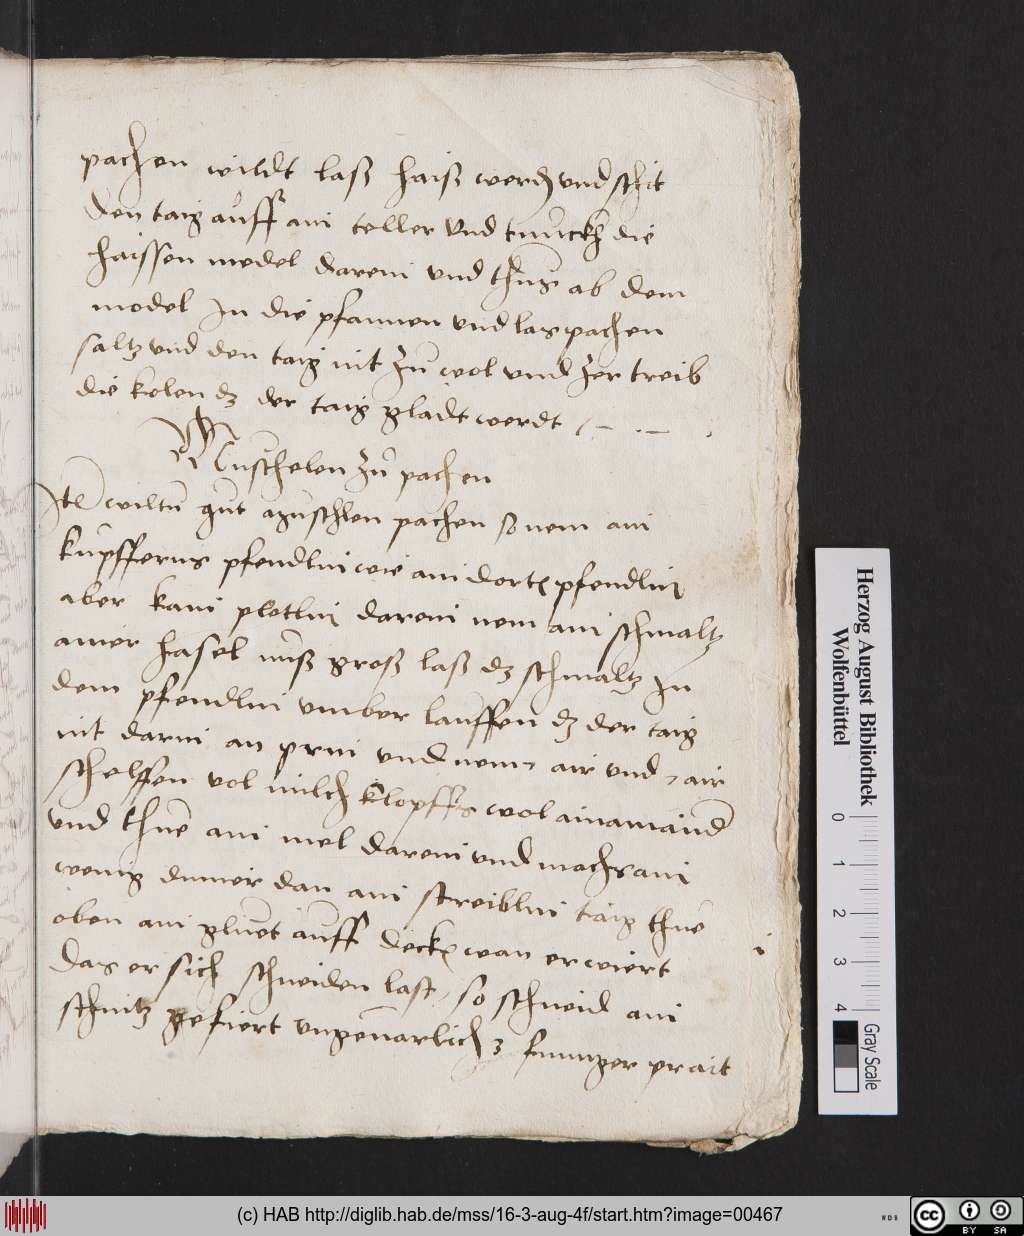 pachen wildt laß haiß werden und schit
den taig auff ain teller Und tunckh die
haissen model darein und thus ab dem
model In die pfannen und las pachen
saltz und den taig nit zu wol und zer treib
die kolen dz der taig gladt werdt
Muschelen zu pachen
Item wiltu gut muschlen pachen so nem ain
kupfferns pfendlin wie ain dorten pfendlin
aber kain pletlin darein nem ain schmaltz
ainer hasel nuß groß laß dz schmaltz In
dem pfendlin umber lauffen dz der taig
nit darin an prin und nem 1 air und 1 air
schelffen vol milch klopffs wol ainamaind
und thue ain mel darein und machs ain
wenig dinner dan ain streiblin taig thue
oben ain gluet auff decken wan er wiert
das er sich schneiden last so schneid ain
schnitz gefiert ungevarlich 3 finnger prait
Herzog August Bibliothek
Wolfenbüttel
0 1 2 3 4
Gray Scale
(c) HAB http://diglib.hab.de/mss/16-3-aug-4f/start.htm?image=00467
WDB
cc BY SA